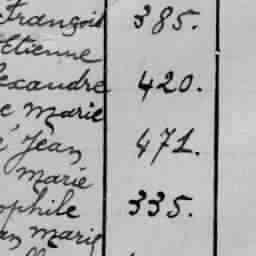 François 385.
Etienne
exandre 420.
e Marie
é, Jean 471.
Marie
ophile 335.
an Marie